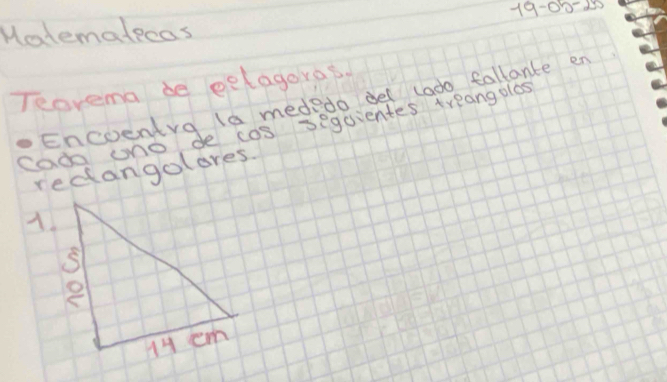 Matematicas
19-05-25
Teorema de pitagoras.
• Encuentra la medida del lado faltante en
cada uno de los siguientes triangulos
rectangulares.
1.
14 cm